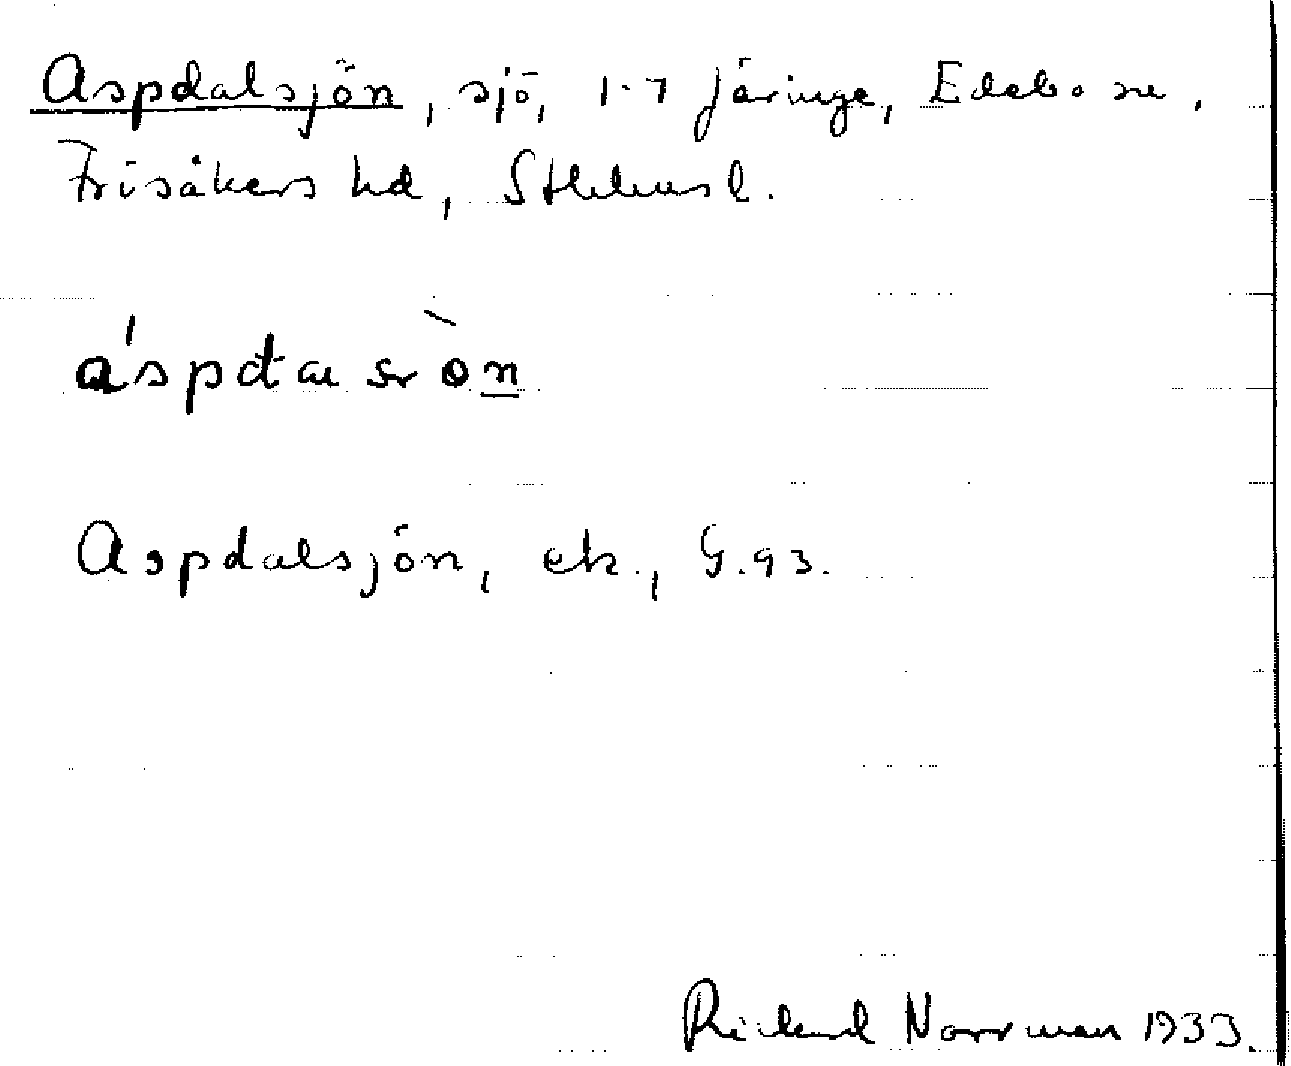 Aspdalsjön, sjö, 1-7 Järinge, Edebo sn,
Frösåkers hd, Sthlms l.
Aspdalsjön, ek., G.93.
Rickard Norrman 1933.